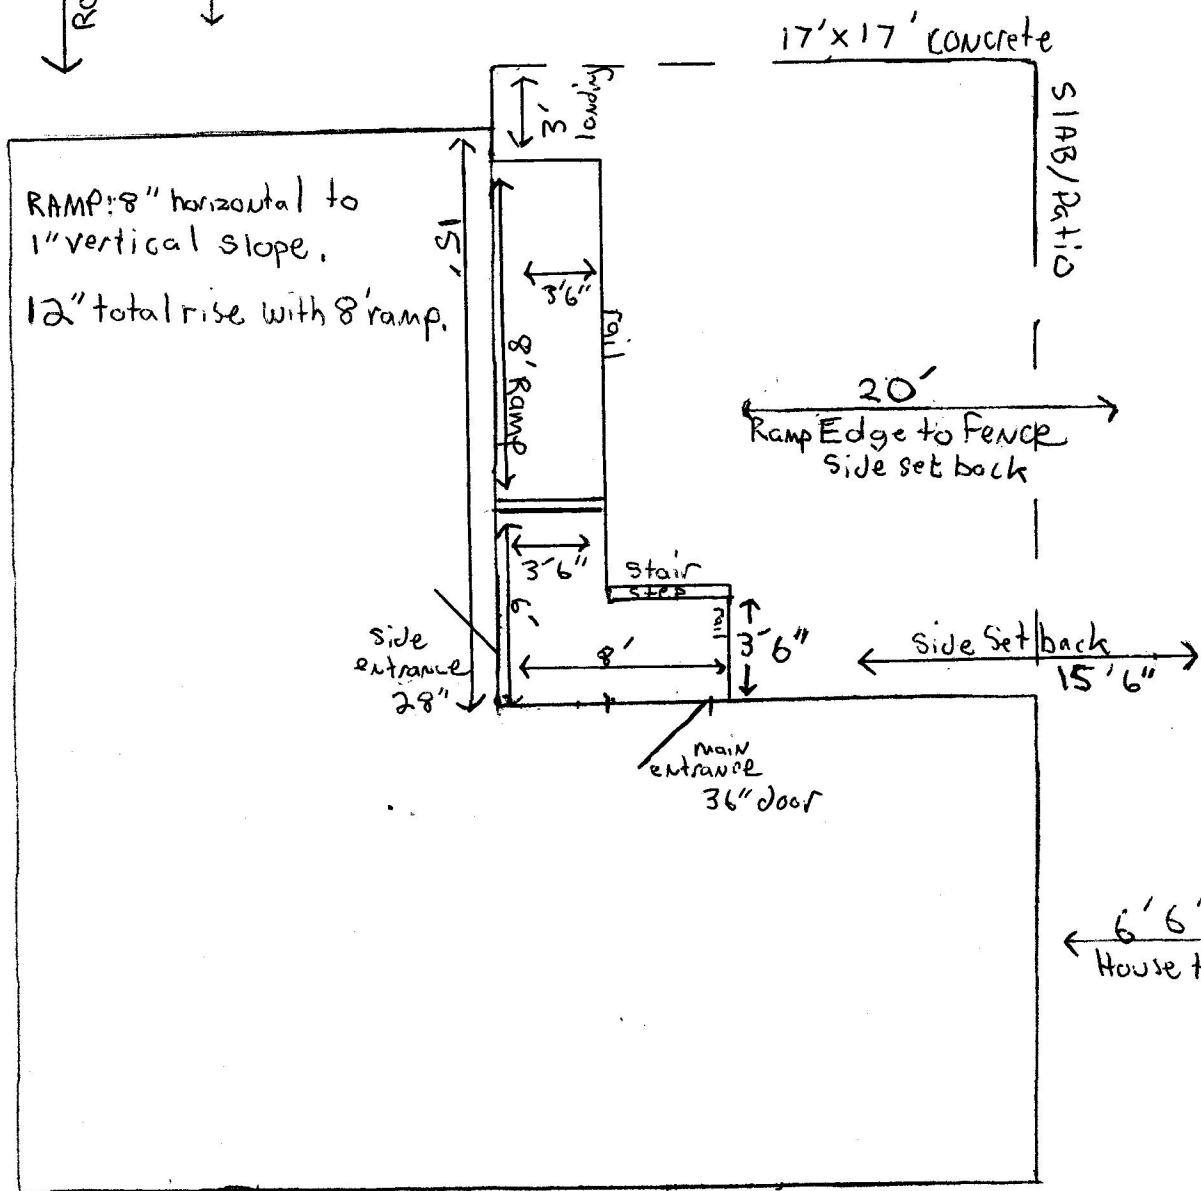 17'x17' concrete
SlAB/Patio
3'
landing
RAMP: 8" horizontal to
1" vertical slope.
12" total rise with 8' ramp.
15'
3'6"
rail
8' Ramp
20'
Ramp Edge to Fence
Side set back
3'6"
stair
step
6'
rail
3'6"
8'
side
entrance
28"
side set back
15'6"
main
entrance
36" door
6'6"
House